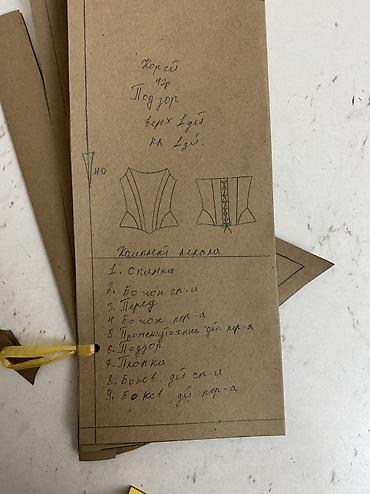 Корсет
42р
Подзор
верх 1 дет
кл 1 дет.
НО
Комплект лекала
1. Спинка
2. Бочок сп-и
3. Перед
4. Бочок пер-а
5. Промежуточные дет. пер-а
6. Подзор
7. Планка
8. Боков дет сп-и
9. Боков дет пер-а